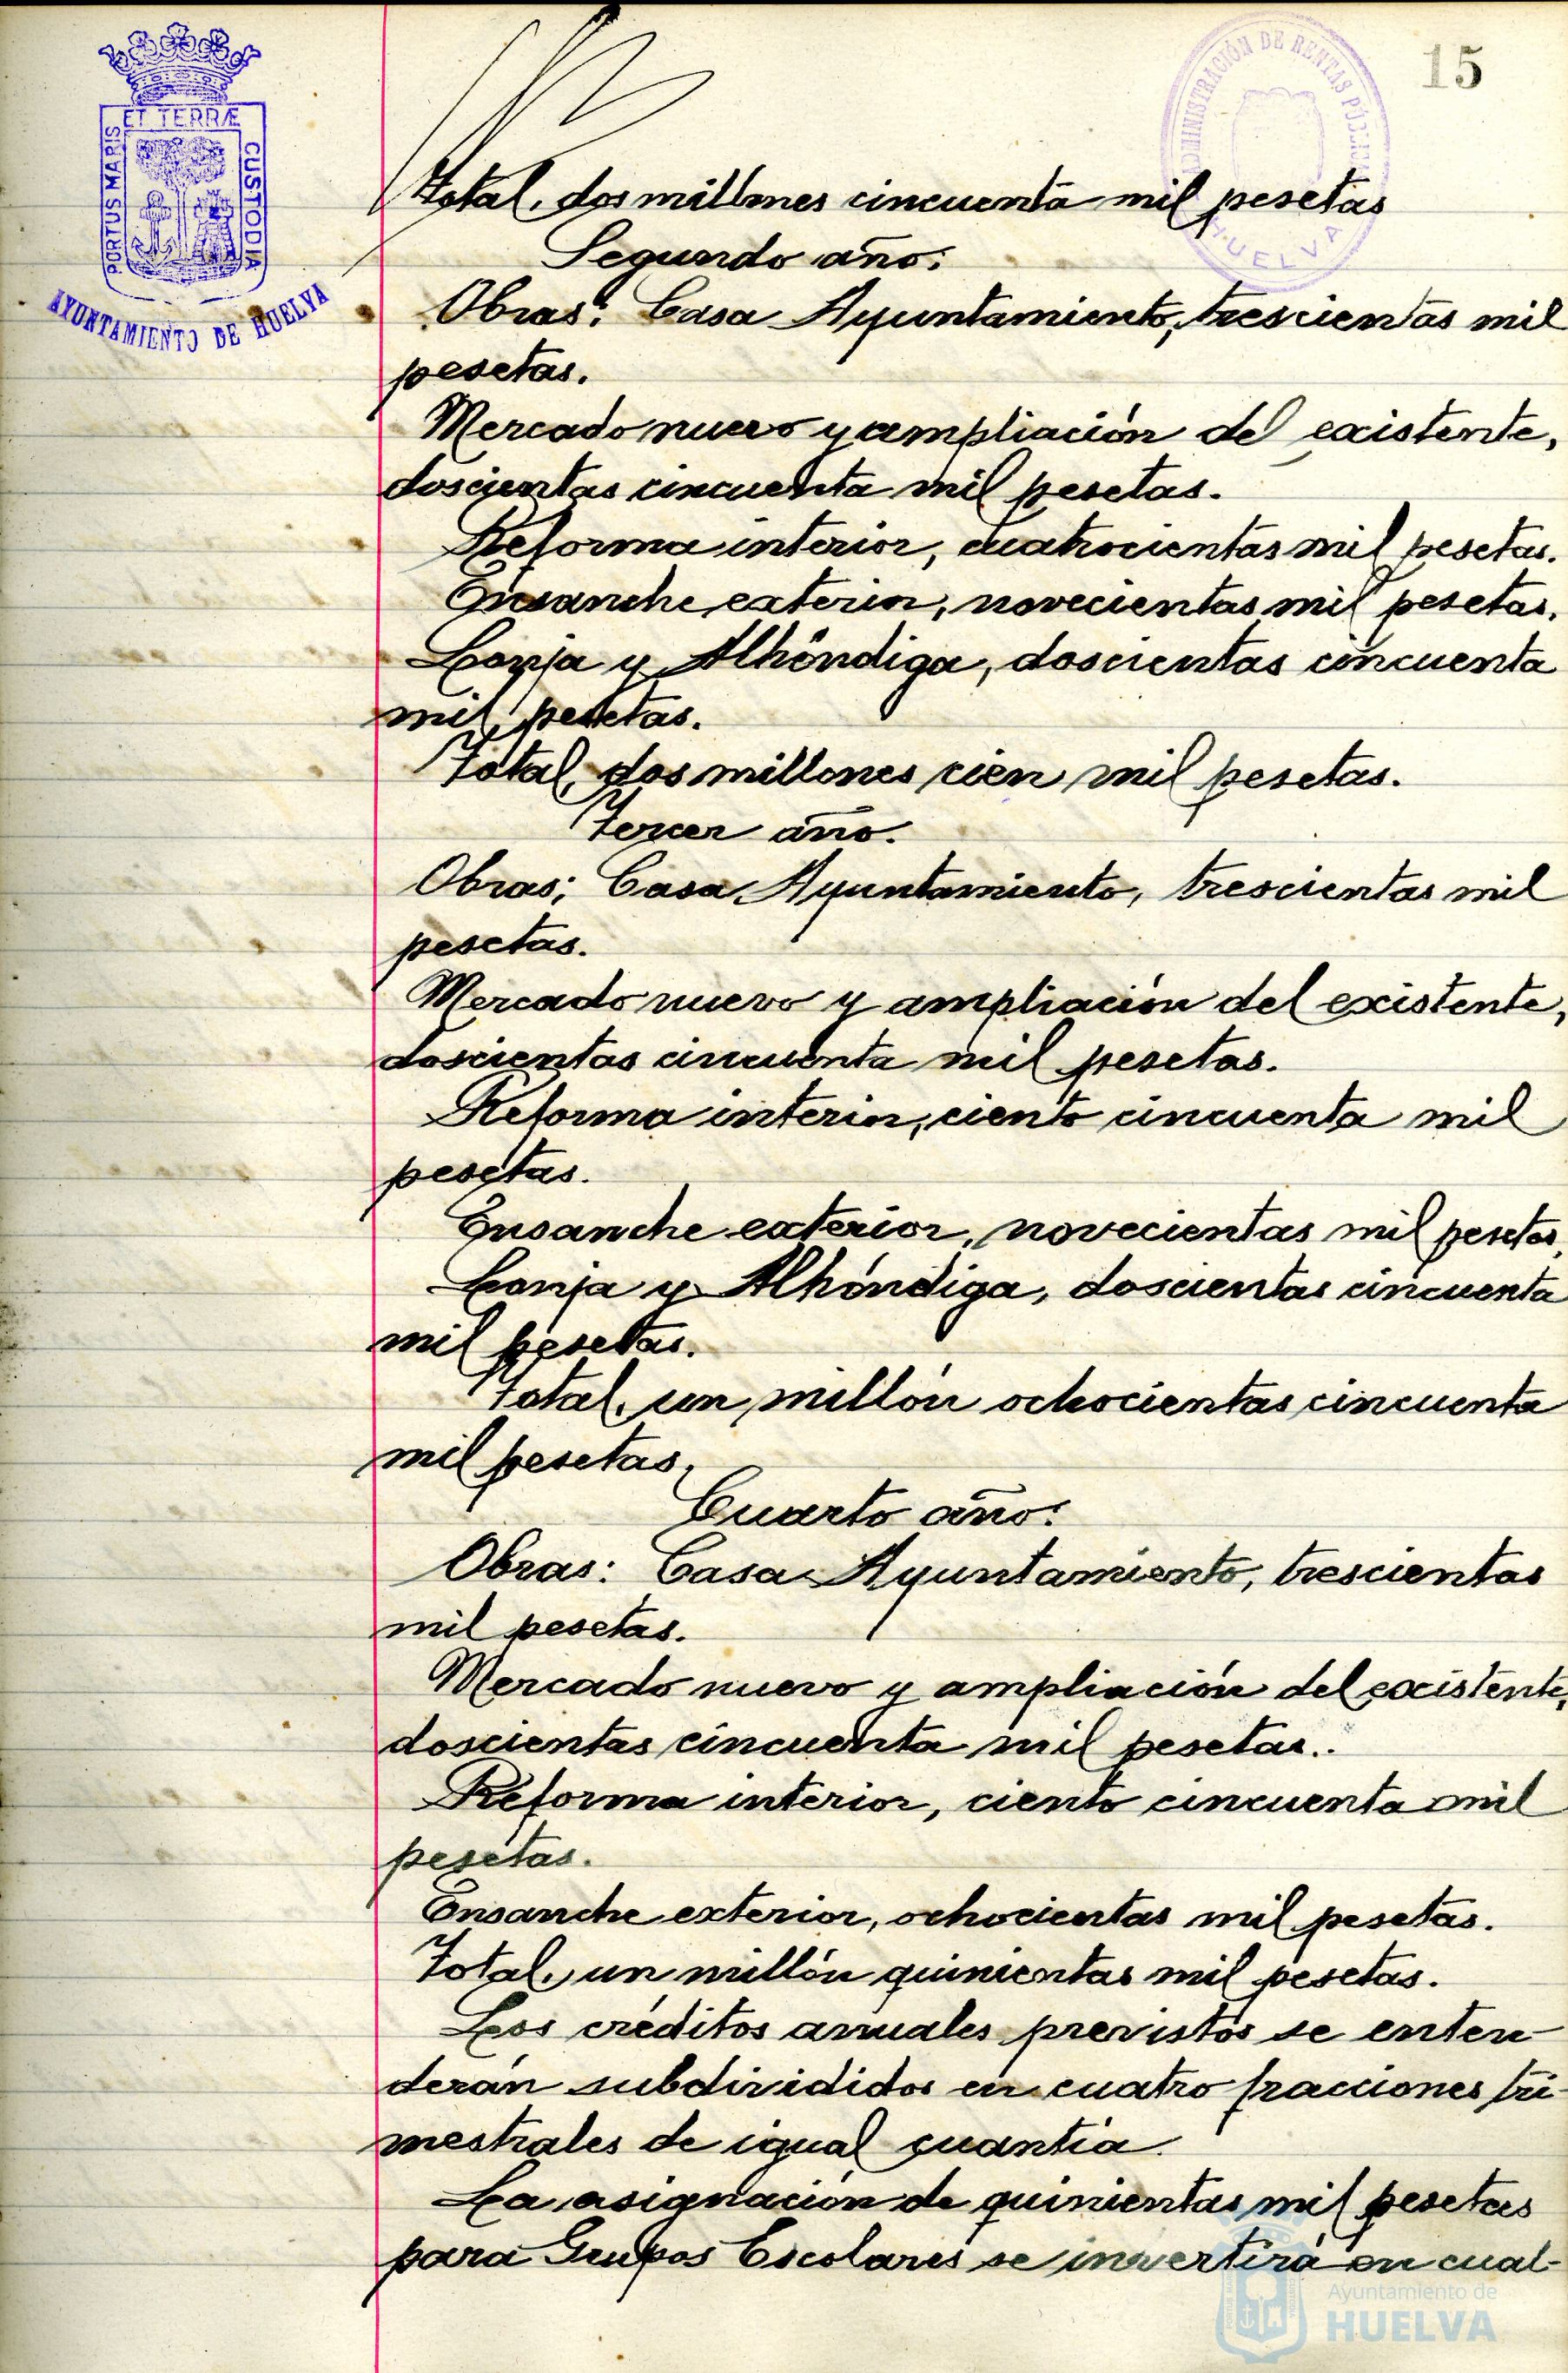 15
ADMINISTRACIÓN DE RENTAS PÚBLICAS
HUELVA
PORTUS MARIS
ET TERRÆ
CUSTODIA
AYUNTAMIENTO DE HUELVA
Total, dos millones cincuenta mil pesetas
Segundo año:
Obras: Casa Ayuntamiento, trescientas mil
pesetas.
Mercado nuevo y ampliación del existente,
doscientas cincuenta mil pesetas.
Reforma interior, cuatrocientas mil pesetas.
Ensanche exterior, novecientas mil pesetas.
Lonja y Alhóndiga, doscientas cincuenta
mil pesetas.
Total, dos millones cien mil pesetas.
Tercer año.
Obras; Casa Ayuntamiento, trescientas mil
pesetas.
Mercado nuevo y ampliación del existente,
doscientas cincuenta mil pesetas.
Reforma interior, ciento cincuenta mil
pesetas.
Ensanche exterior, novecientas mil pesetas,
Lonja y Alhóndiga, doscientas cincuenta
mil pesetas.
Total, un millón ochocientas cincuenta
mil pesetas,
Cuarto año:
Obras: Casa Ayuntamiento, trescientas
mil pesetas.
Mercado nuevo y ampliación del existente,
doscientas cincuenta mil pesetas..
Reforma interior, ciento cincuenta mil
pesetas.
Ensanche exterior, ochocientas mil pesetas.
Total, un millón quinientas mil pesetas.
Los créditos anuales previstos se enten-
derán subdivididos en cuatro fracciones tri-
mestrales de igual cuantía.
La asignación de quinientas mil pesetas
para Grupos Escolares se invertirá en cual-
Ayuntamiento de
HUELVA